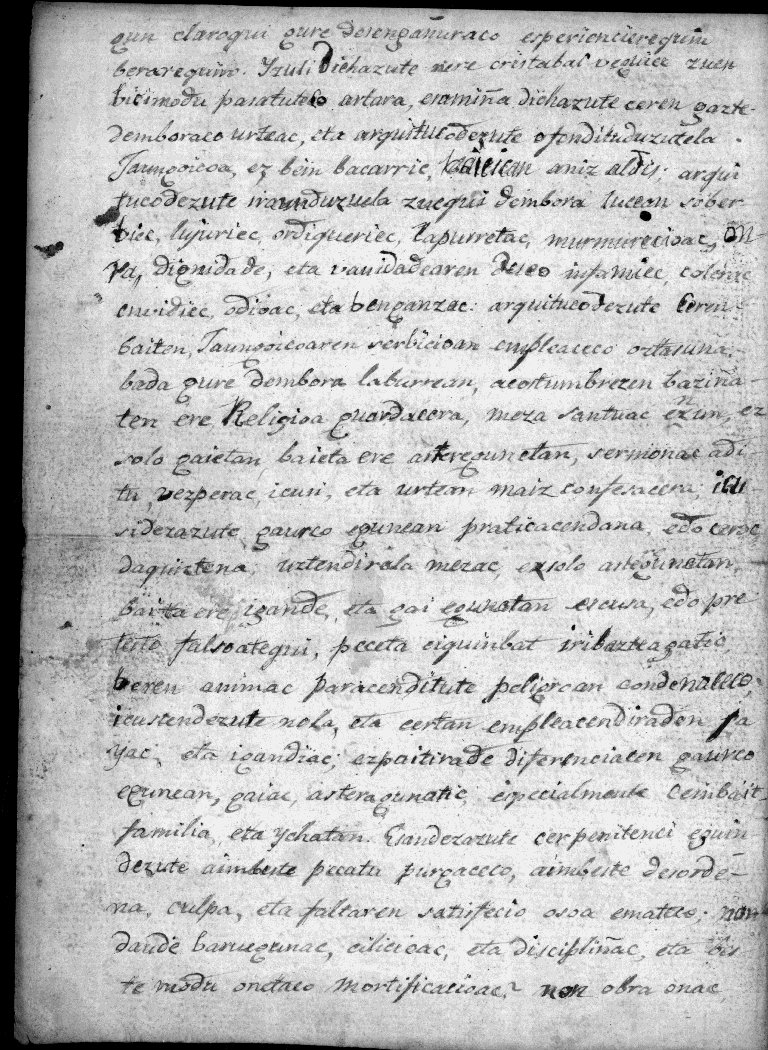 gun claroqui gure desengañuraco esperiencierequin
berarequin. Itzuli dichazute nere cristabac veguiec zuen
bicimodu pasatuteco artara, esamiña dichazute ceren gazte
demboraco urteac, eta arquitucodezute ofendituduzutela
Jaungoicoa, ez bein bacarric, baicican aniz aldis: arqui
tucodezute iraunduzuela zuequi dembora lucean sober
biec, lujuriec, ordiqueriec, lapurretac, murmurecioac, on-
ra, dignidade, eta vanidadearen deseo infamiec, colerac
envidiec, odioac, eta benganzac: arquitucodezute ceren
baiten, Jaungoicoaren serbicioan empleaceco oztasuna.
bada gure dembora laburrean, acostumbrezen baziña-
ten ere Religioa guardacera, meza santuac ezun, ez
solo gaietan, baieta ere astegunetan, sermonac adi-
tu, vezperac, icusi, eta urtean maiz confesacera; icu
sidezazute gaurco egunean praticacendana, edo ceroc
daquiztena; uztendirala mezac, ez solo astegunetan,
baita ere igande, eta gai egunetan escusa, edo pre
teste falsoategui, peceta ciquinbat iribazteagatic
beren animac paracenditute peligroan condenaceco,
icustendezute nola, eta certan empleacendiraden ja
yac, eta igandiac; ezpaitirade diferenciacen gaurco
egunean, gaiac, asteragunatic, especialmente cembait
familia, eta ychatan. Esandezazute cer penitenci eguin
dezute aimbeste pecatu purgaceco, aimbeste desorde-
na, culpa, eta faltaren satisfecio osoa emateco; non
daude barurgunac, cilicioac, eta disciplinac, eta bes
te modu onetaco mortificacioac? non obra onac